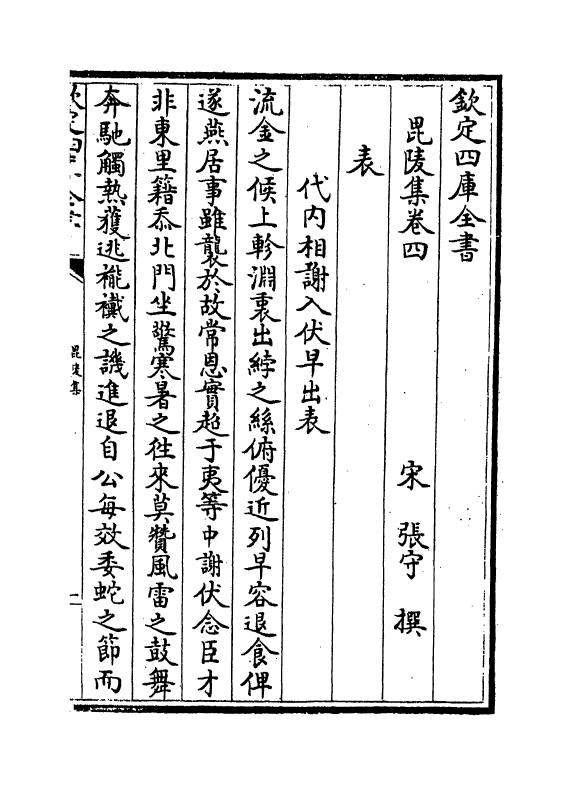 欽定四庫全書
毘陵集卷四
宋 張守 撰
表
代内相謝入伏早出表
流金之候上軫淵衷出綍之絲俯優近列早容退食俾
遂燕居事雖襲於故常恩實超于夷等中謝伏念臣才
非東里籍忝北門坐驚寒暑之往來莫贊風雷之鼓舞
奔馳觸熱獲逃褦襶之譏進退自公每效委蛇之節而
欽定四庫全書
毘陵集